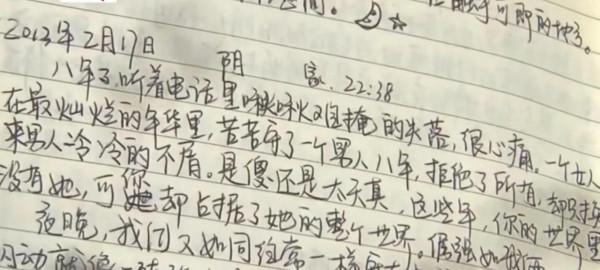 触手可即的地方。
2013年2月17日 阴 家. 22:38
八年了,听着电话里啾啾难掩的失落,很心痛,一个女人
在最灿烂的年华里,苦苦守了一个男人八年,拒绝了所有,却只换
来男人冷冷的不屑。是傻还是太天真,这些年,你的世界里
没有她,可您却占据了她的整个世界。倔强如她
夜晚,我们又如同往常一样